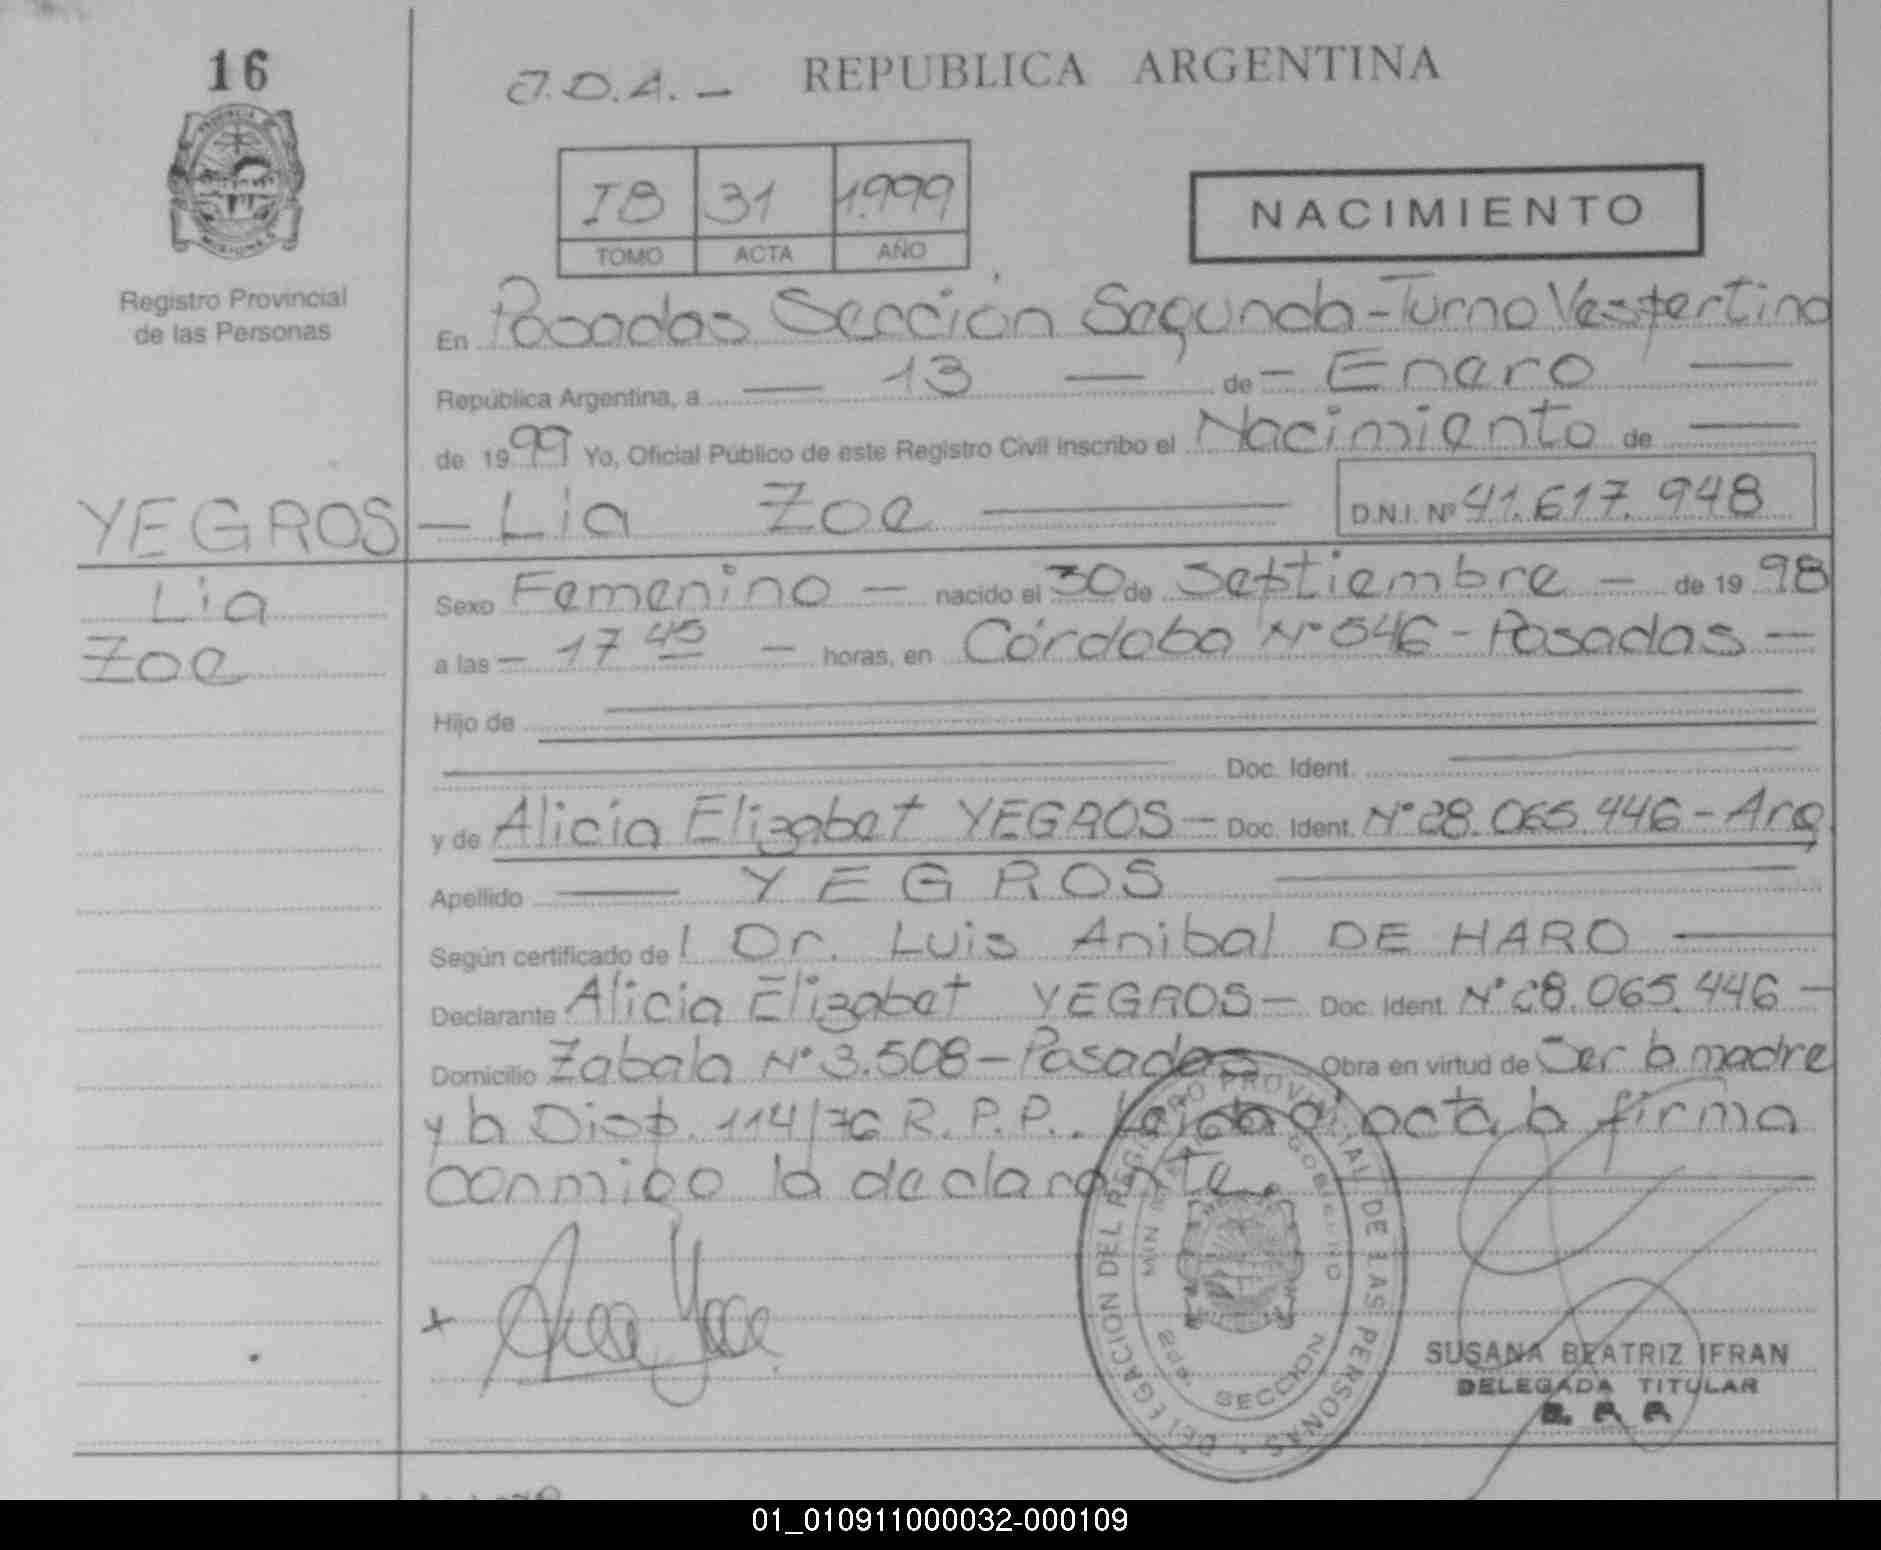 16
J.D.A. — REPUBLICA ARGENTINA
I8 31 1.999
TOMO ACTA AÑO
NACIMIENTO
Registro Provincial
de las Personas
En Posadas Sección Segunda - Turno Vespertino
República Argentina, a — 13 — de - Enero —
de 1999 Yo, Oficial Público de este Registro Civil Inscribo el Nacimiento de —
YEGROS - Lia Zoe — D.N.I. Nº 41.617.948
Lia
Zoe
Sexo Femenino — nacido el 30 de Septiembre — de 19 98
a las - 17 45 — horas, en Córdoba Nº 546 - Posadas —
Hijo de
Doc. Ident.
y de Alicia Elizabet YEGROS - Doc. Ident. Nº 28.065.446 - Arg
Apellido — YEGROS —
Según certificado de l Dr. Luis Anibal DE HARO —
Declarante Alicia Elizabet YEGROS - Doc. Ident. Nº 28.065.446 -
Domicilio Zabala Nº 3.508 - Posadas Obra en virtud de Ser la madre
y la Disp. 114/76 R.P.P.. Leida el acta la firma
conmigo la declarante.
DELEGACION DEL REGISTRO PROVINCIAL DE LAS PERSONAS
GOBIERNO
SECCION
SUSANA BEATRIZ IFRAN
DELEGADA TITULAR
01_010911000032-000109